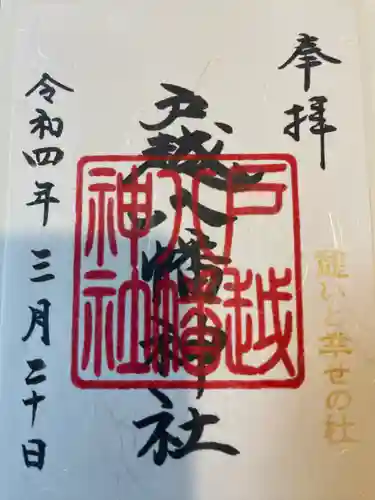 奉拝
龍いと幸せの社
戸越八幡神社
戸越
八幡
神社
令和四年三月二十日